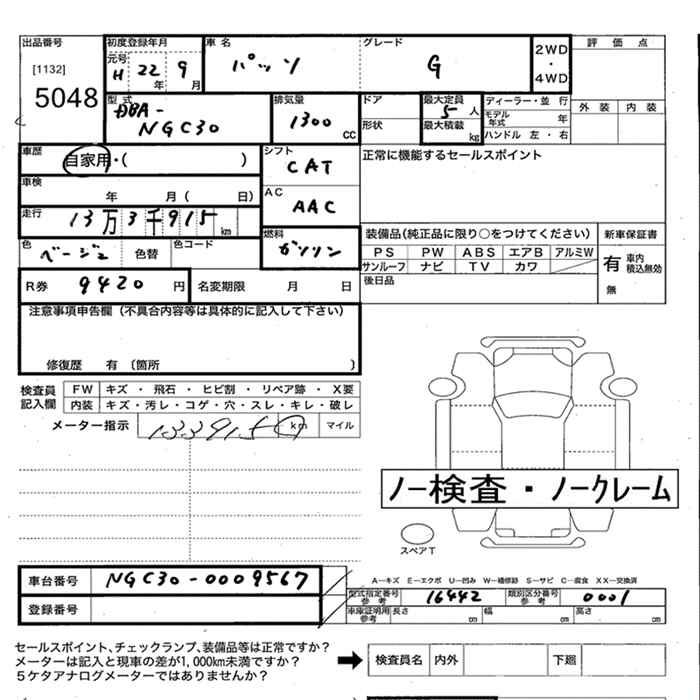 出品番号 初度登録年月 車名 グレード 評価点
[1132] 元号 H 22年 9月 パッソ G 2WD・4WD
5048 型式 DBA-NGC30 排気量 1300 CC ドア 形状 最大定員 5人 最大積載 kg ディーラー・並行 モデル年式 年 ハンドル 左・右 外装 内装
車歴 自家用・( ) シフト CAT 正常に機能するセールスポイント
車検 年 月 ( 日) AC AAC
走行 13万3千915km 装備品(純正品に限り○をつけてください) 新車保証書
色 ベージュ 色替 色コード 燃料 ガソリン PS PW ABS エアB アルミW 有 車内積込無効
サンルーフ ナビ TV カワ
R券 9420円 名変期限 月 日 後日品 無
注意事項申告欄(不具合内容等は具体的に記入して下さい)
修復歴 有 〔箇所 〕
検査員記入欄 FW キズ・飛石・ヒビ割・リペア跡・X要
内装 キズ・汚レ・コゲ・穴・スレ・キレ・破レ
メーター指示 133915 km マイル
ノー検査・ノークレーム
スペアT
車台番号 NGC30-0009567
A―キズ E―エクボ U―凹み W―補修跡 S―サビ C―腐食 XX―交換済
型式指定番号 参考 16442 類別区分番号 参考 0001
登録番号 車庫証明用 参考 長さ cm 幅 cm 高さ cm
セールスポイント、チェックランプ、装備品等は正常ですか?
メーターは記入と現車の差が1,000km未満ですか? 検査員名 内外 下廻
5ケタアナログメーターではありませんか?